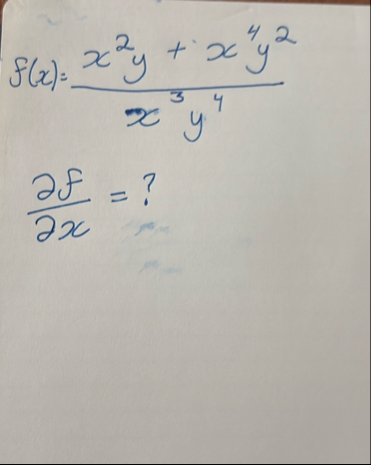 f(x) = \frac{x^2y + x^4y^2}{x^3y^4}
\frac{∂f}{∂x} = ?